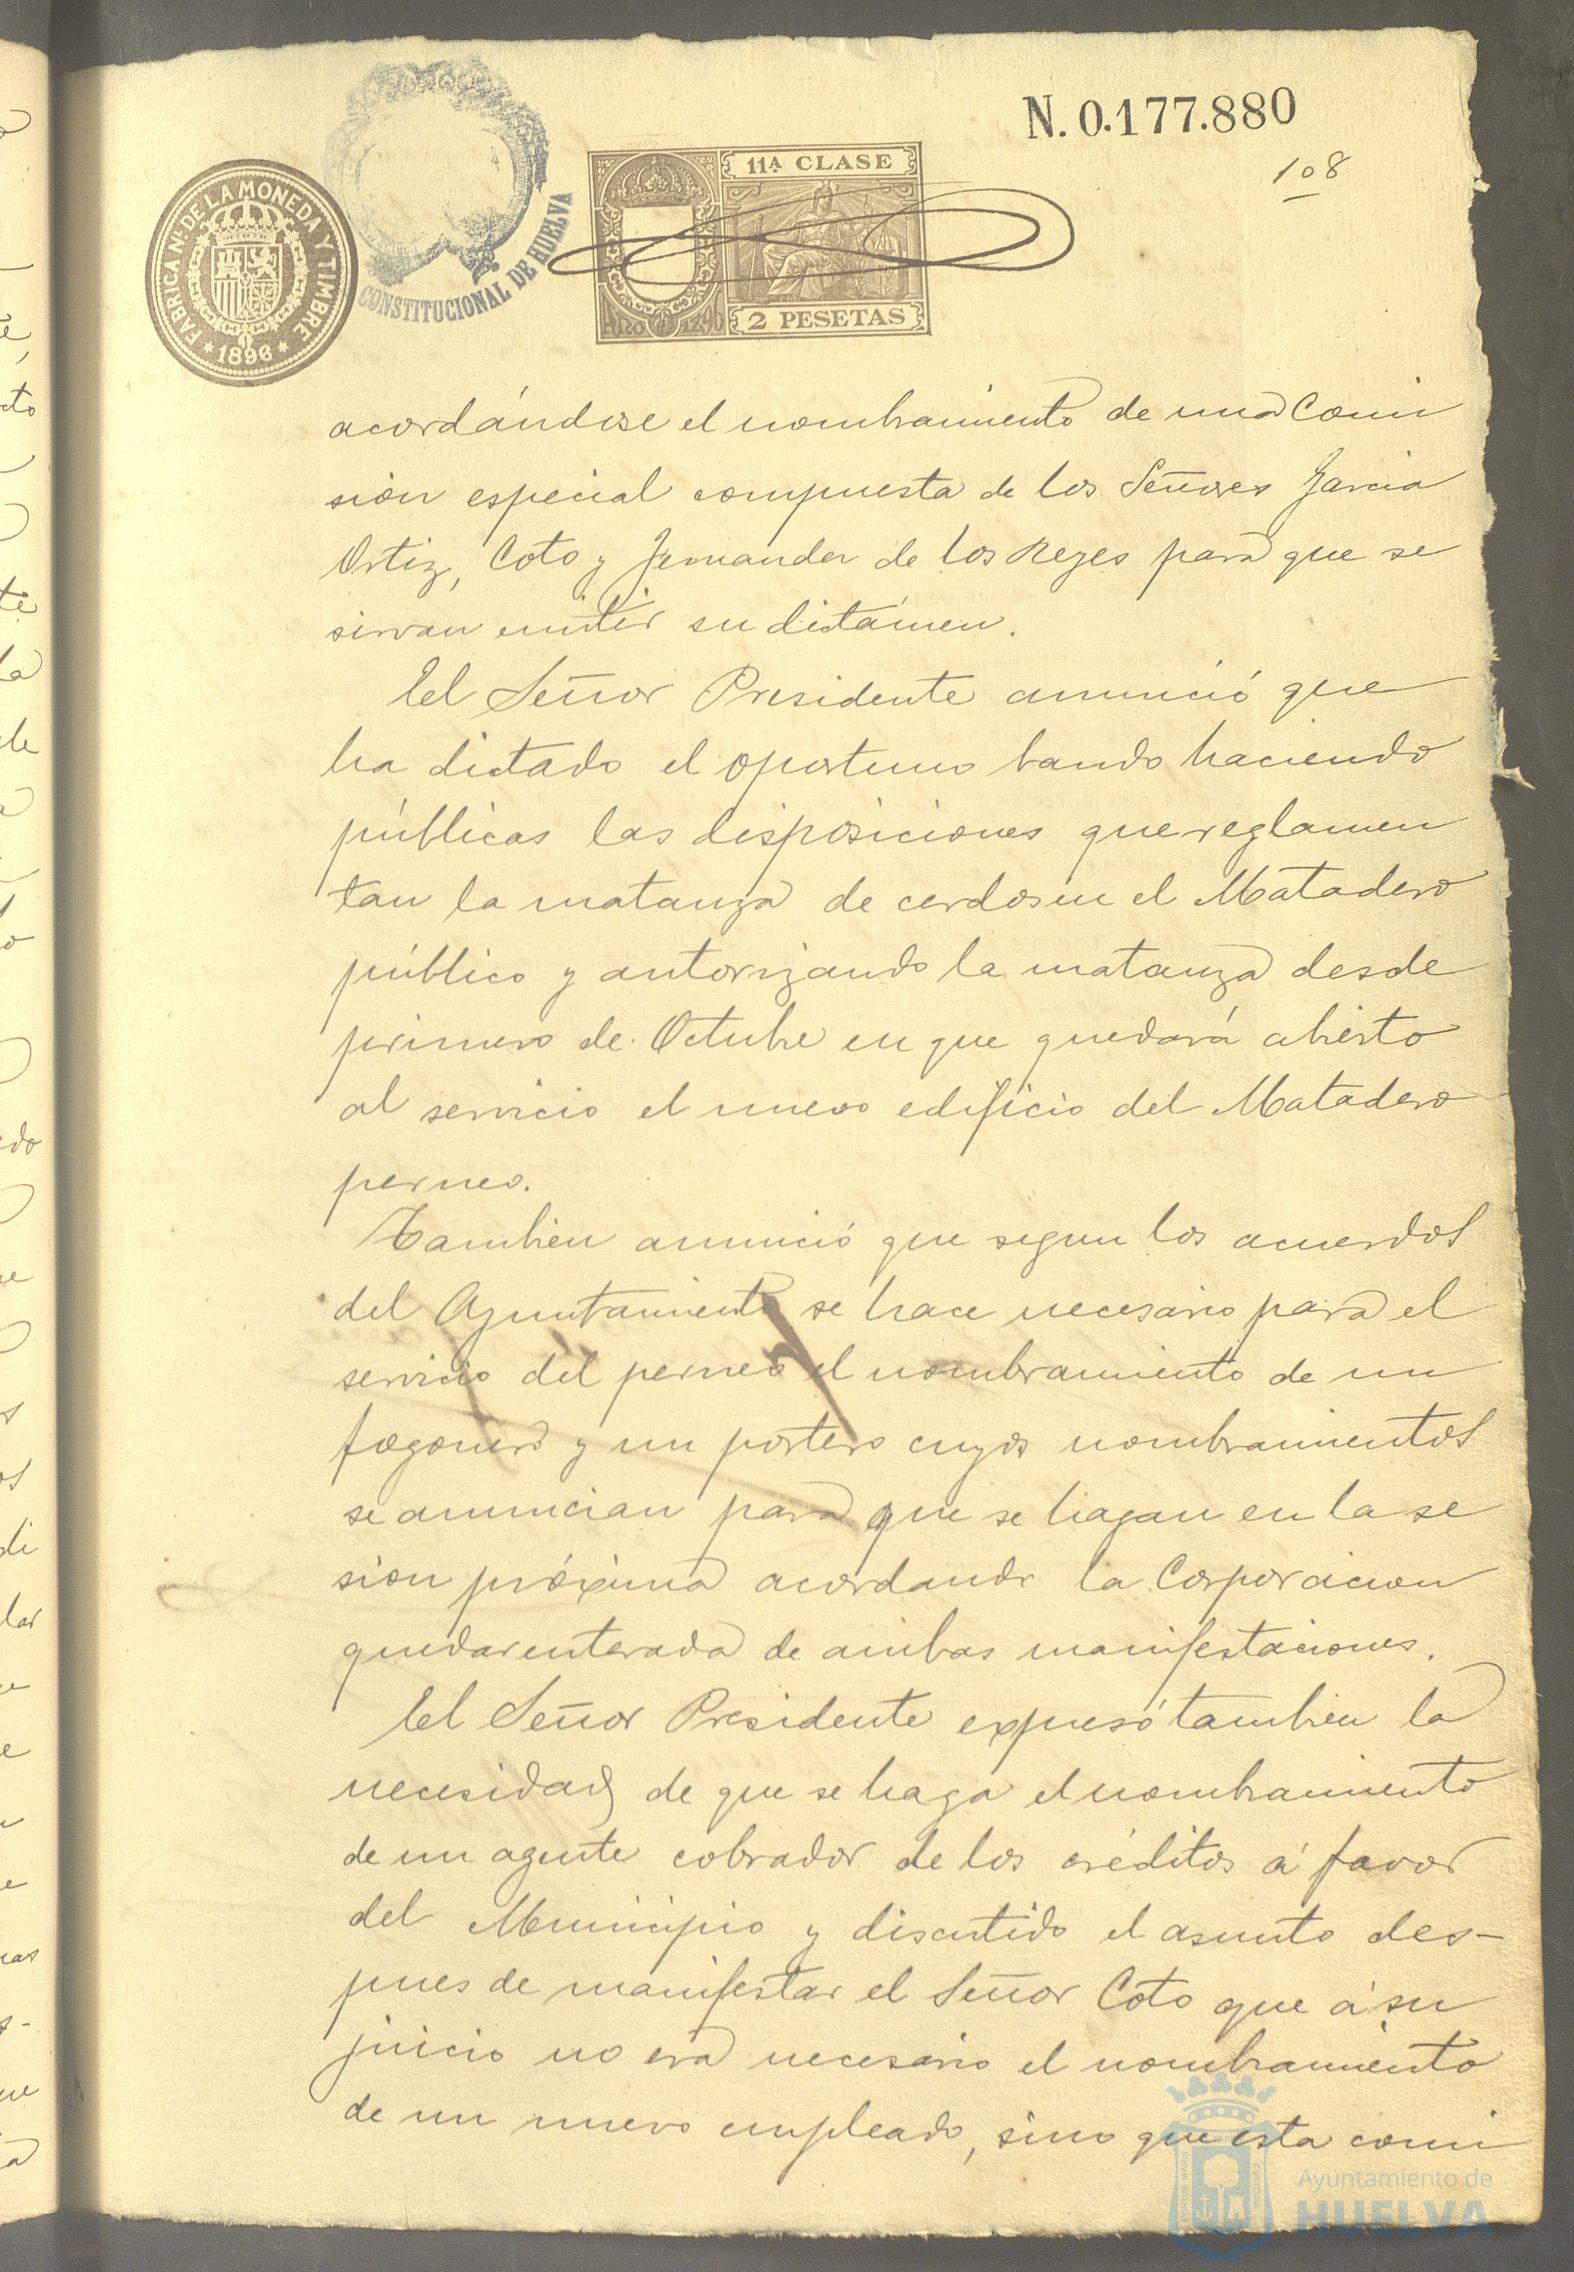 N. 0.177.880
108
FABRICA NL. DE LA MONEDA Y TIMBRE
* 1896 *
CONSTITUCIONAL DE HUELVA
11ª CLASE
AÑO 1896
2 PESETAS
acordándose el nombramiento de una Comi
sion especial compuesta de los Señores Garcia
Ortiz, Coto y Fernandez de los Reyes para que se
sirvan emitir su dictámen.
El Señor Presidente anunció que
ha dictado el oportuno bando haciendo
públicas las disposiciones que reglamen
tan la matanza de cerdos en el Matadero
público y autorizando la matanza desde
primero de Octubre en que quedará abierto
al servicio el nuevo edificio del Matadero
perneo.
Tambien anunció que segun los acuerdos
del Ayuntamiento se hace necesario para el
servicio del perneo el nombramiento de un
fogonero y un portero cuyos nombramientos
se anuncian para que se hagan en la se
sion próxima acordando la Corporacion
quedar enterada de ambas manifestaciones.
El Señor Presidente expresó tambien la
necesidad de que se haga el nombramiento
de un agente cobrador de los créditos á favor
del Municipio y discutido el asunto des-
pues de manifestar el Señor Coto que á su
juicio no era necesario el nombramiento
de un nuevo empleado, sino que esta comi
Ayuntamiento de
HUELVA